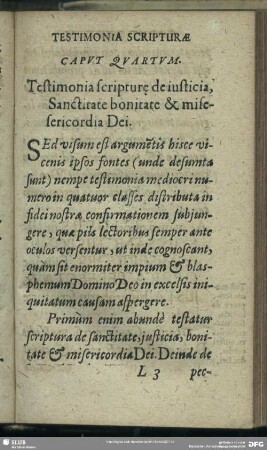 TESTIMONIA SCRIPTURÆ
CAPVT QVARTVM.
Testimonia scripturę de iusticia,
Sanctitate bonitate & mise-
sericordia Dei.
SEd visum est argumētis hisce vi-
cenis ipsos fontes (unde desumta
sunt) nempe testimonia mediocri nu-
mero in quatuor classes distributa in
fidei nostræ confirmationem subjun-
gere, quæ piis lectoribus semper ante
oculos versentur, ut inde cognoscant,
quàm sit enormiter impium & blas-
phemum Domino Deo in excelsis ini-
quitatum causam aspergere.
Primùm enim abundè testatur
scriptura de sanctitate, justicia, boni-
tate & misericordia Dei. Deinde de
L 3 pec-
SLUB
DFG